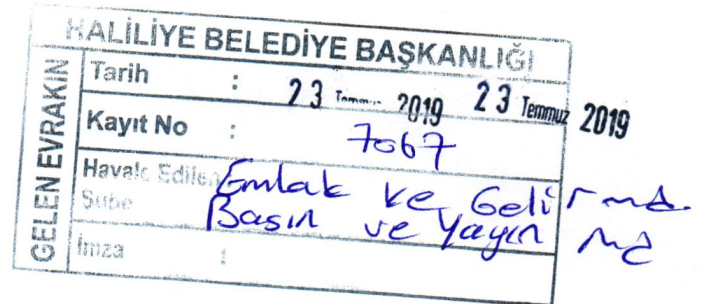 HALİLİYE BELEDİYE BAŞKANLIĞI
GELEN EVRAKIN
Tarih : 23 Temmuz 2019 23 Temmuz 2019
Kayıt No : 7067
Havale Edilen Şube
Emlak ve Gelir md.
Basın ve Yayın Md
İmza :